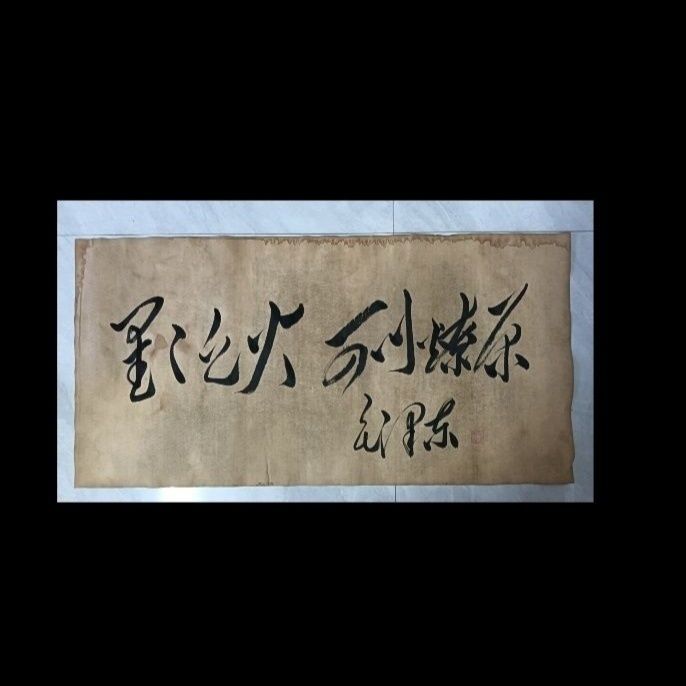 星星之火 可以燎原
毛泽东